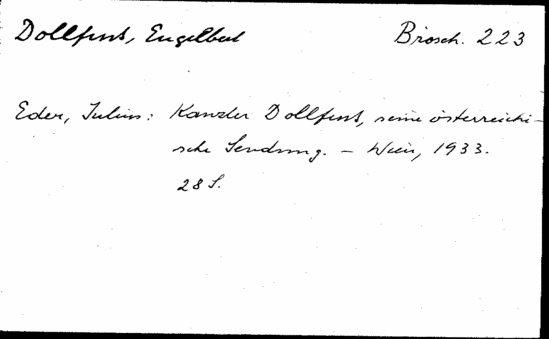 Dollfuß, Engelbert Brosch. 223
Eder, Julius: Kanzler Dollfuß, seine österreichi-
sche Sendung. – Wien, 1933.
28 S.